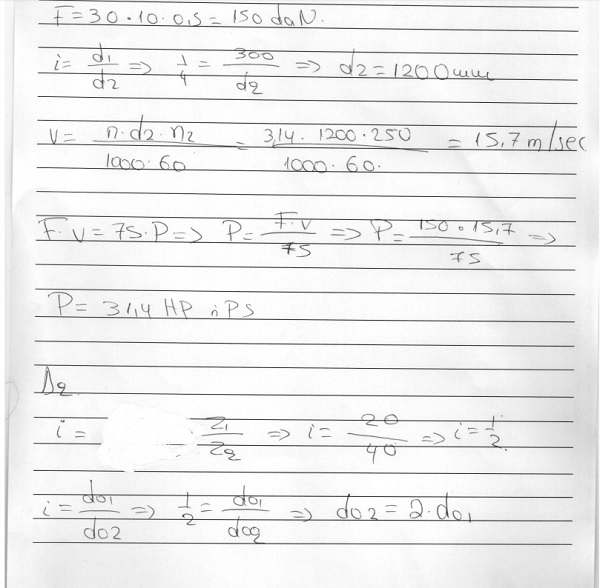 F = 30 · 10 · 0,5 = 150 daN.
i = d1/d2 => 1/4 = 300/d2 => d2 = 1200mm
V = π · d2 · n2 / 1000 · 60 = 3,14 · 1200 · 250 / 1000 · 60. = 15,7 m/sec
F · V = 75 · P => P = F · V / 75 => P = 150 · 15,7 / 75 =>
P = 31,4 HP ή PS
Δ2
i = Z1/Z2 => i = 20/40 => i = 1/2.
i = do1/do2 => 1/2 = do1/do2 => do2 = 2 · do1